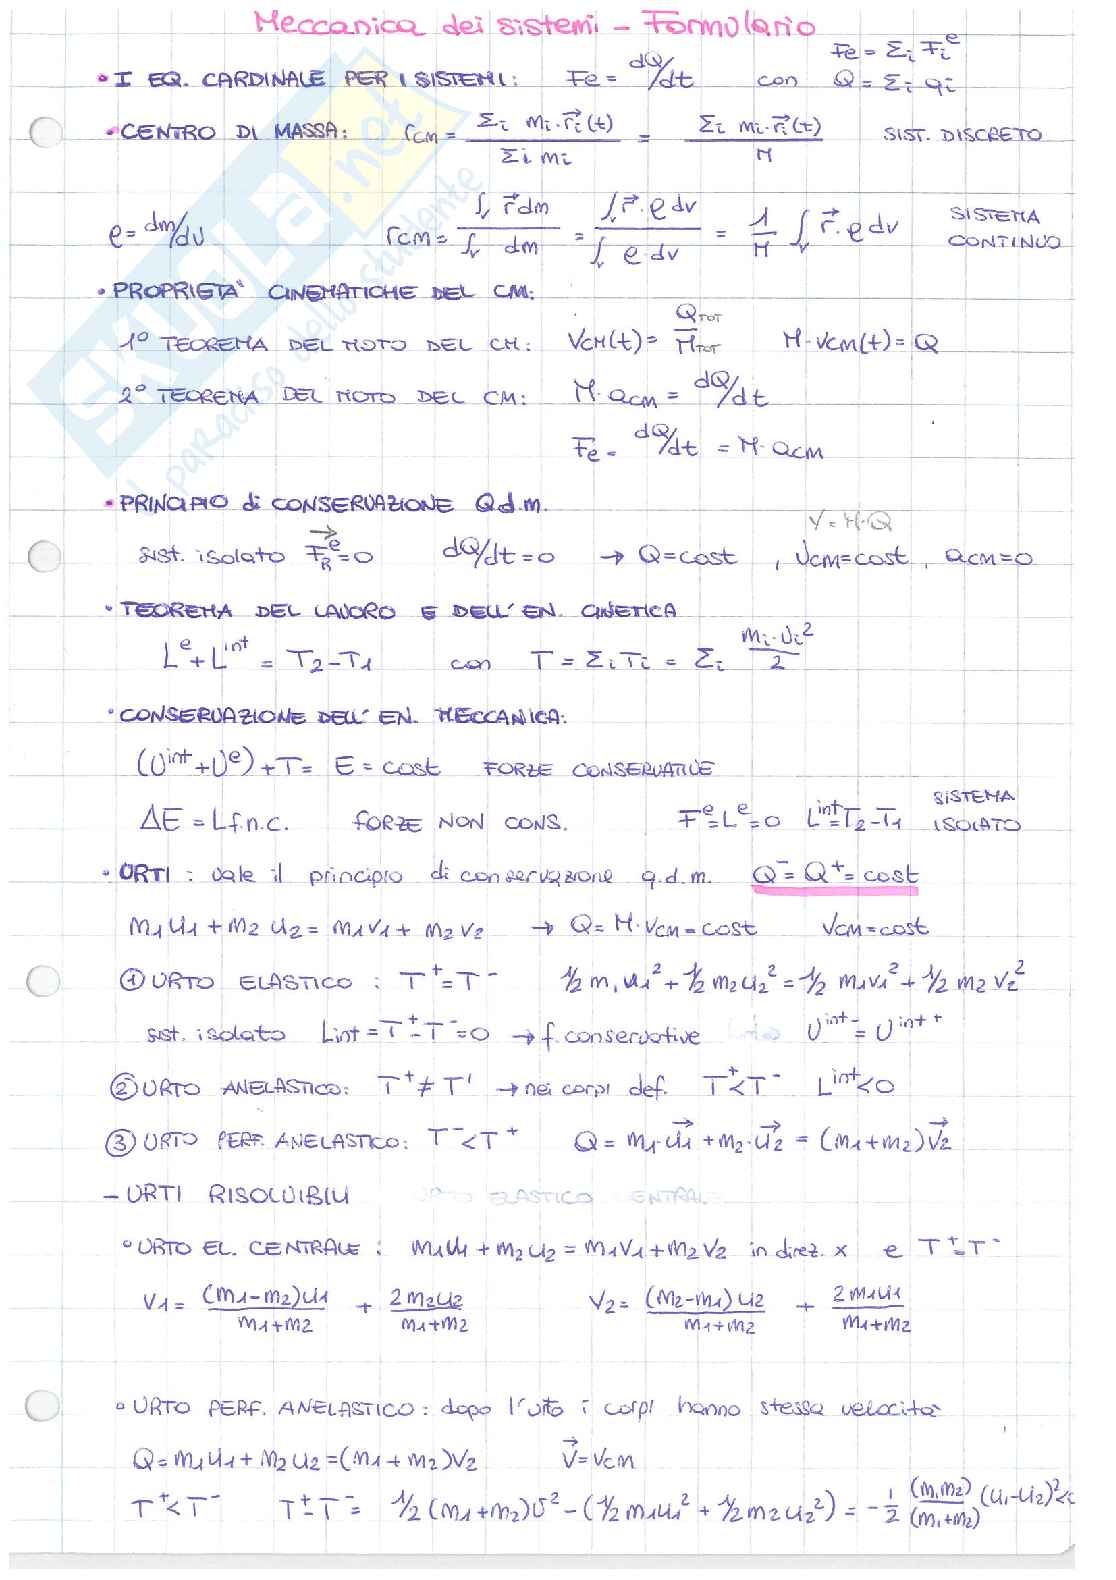 Meccanica dei sistemi - Formulario
Fe = Σi Fi^e
• I EQ. CARDINALE PER I SISTEMI: Fe = dQ/dt con Q = Σi qi
• CENTRO DI MASSA: rCM = Σi mi·r⃗i(t) / Σi mi = Σi mi·r⃗i(t) / M SIST. DISCRETO
ρ = dm/dv rCM = ∫v r⃗ dm / ∫v dm = ∫v r⃗·ρ dv / ∫v ρ·dv = 1/M ∫v r⃗·ρ dv SISTEMA CONTINUO
• PROPRIETA' CINEMATICHE DEL CM:
1° TEOREMA DEL MOTO DEL CM: VCM(t) = QTOT / MTOT M·VCM(t) = Q
2° TEOREMA DEL MOTO DEL CM: M·aCM = dQ/dt
Fe = dQ/dt = M·aCM
• PRINCIPIO di CONSERVAZIONE Q.d.m.
V = M·Q
sist. isolato F⃗R^e = 0 dQ/dt = 0 → Q = cost, VCM = cost, aCM = 0
• TEOREMA DEL LAVORO E DELL'EN. CINETICA
L^e + L^int = T2 - T1 con T = Σi Ti = Σi mi·vi²/2
• CONSERVAZIONE DELL'EN. MECCANICA:
(U^int + U^e) + T = E = cost FORZE CONSERVATIVE
ΔE = Lf.n.c. FORZE NON CONS. F^e = L^e = 0 L^int = T2 - T1 SISTEMA ISOLATO
• URTI: vale il principio di conservazione q.d.m. Q⁻ = Q⁺ = cost
m1u1 + m2u2 = m1v1 + m2v2 → Q = M·VCM = cost VCM = cost
① URTO ELASTICO: T⁺ = T⁻ 1/2 m1u1² + 1/2 m2u2² = 1/2 m1v1² + 1/2 m2v2²
sist. isolato Lint = T⁺ - T⁻ = 0 → f. conservative U^int⁻ = U^int⁺
② URTO ANELASTICO: T⁺ ≠ T' → nei corpi def. T⁺ < T⁻ L^int < 0
③ URTO PERF. ANELASTICO: T⁻ < T⁺ Q = m1·u⃗1 + m2·u⃗2 = (m1+m2)v⃗2
- URTI RISOLVIBILI URTO ELASTICO CENTRALE
• URTO EL. CENTRALE: m1u1 + m2u2 = m1v1 + m2v2 in direz. x e T⁺ = T⁻
v1 = (m1-m2)u1 / m1+m2 + 2m2u2 / m1+m2 v2 = (m2-m1)u2 / m1+m2 + 2m1u1 / m1+m2
• URTO PERF. ANELASTICO: dopo l'urto i corpi hanno stessa velocità
Q = m1u1 + m2u2 = (m1+m2)v2 v⃗ = VCM
T⁺ < T⁻ T⁺ - T⁻ = 1/2 (m1+m2)v² - (1/2 m1u1² + 1/2 m2u2²) = -1/2 (m1m2)/(m1+m2) (u1-u2)² <0
SKUOLA.net
il paradiso dello studente